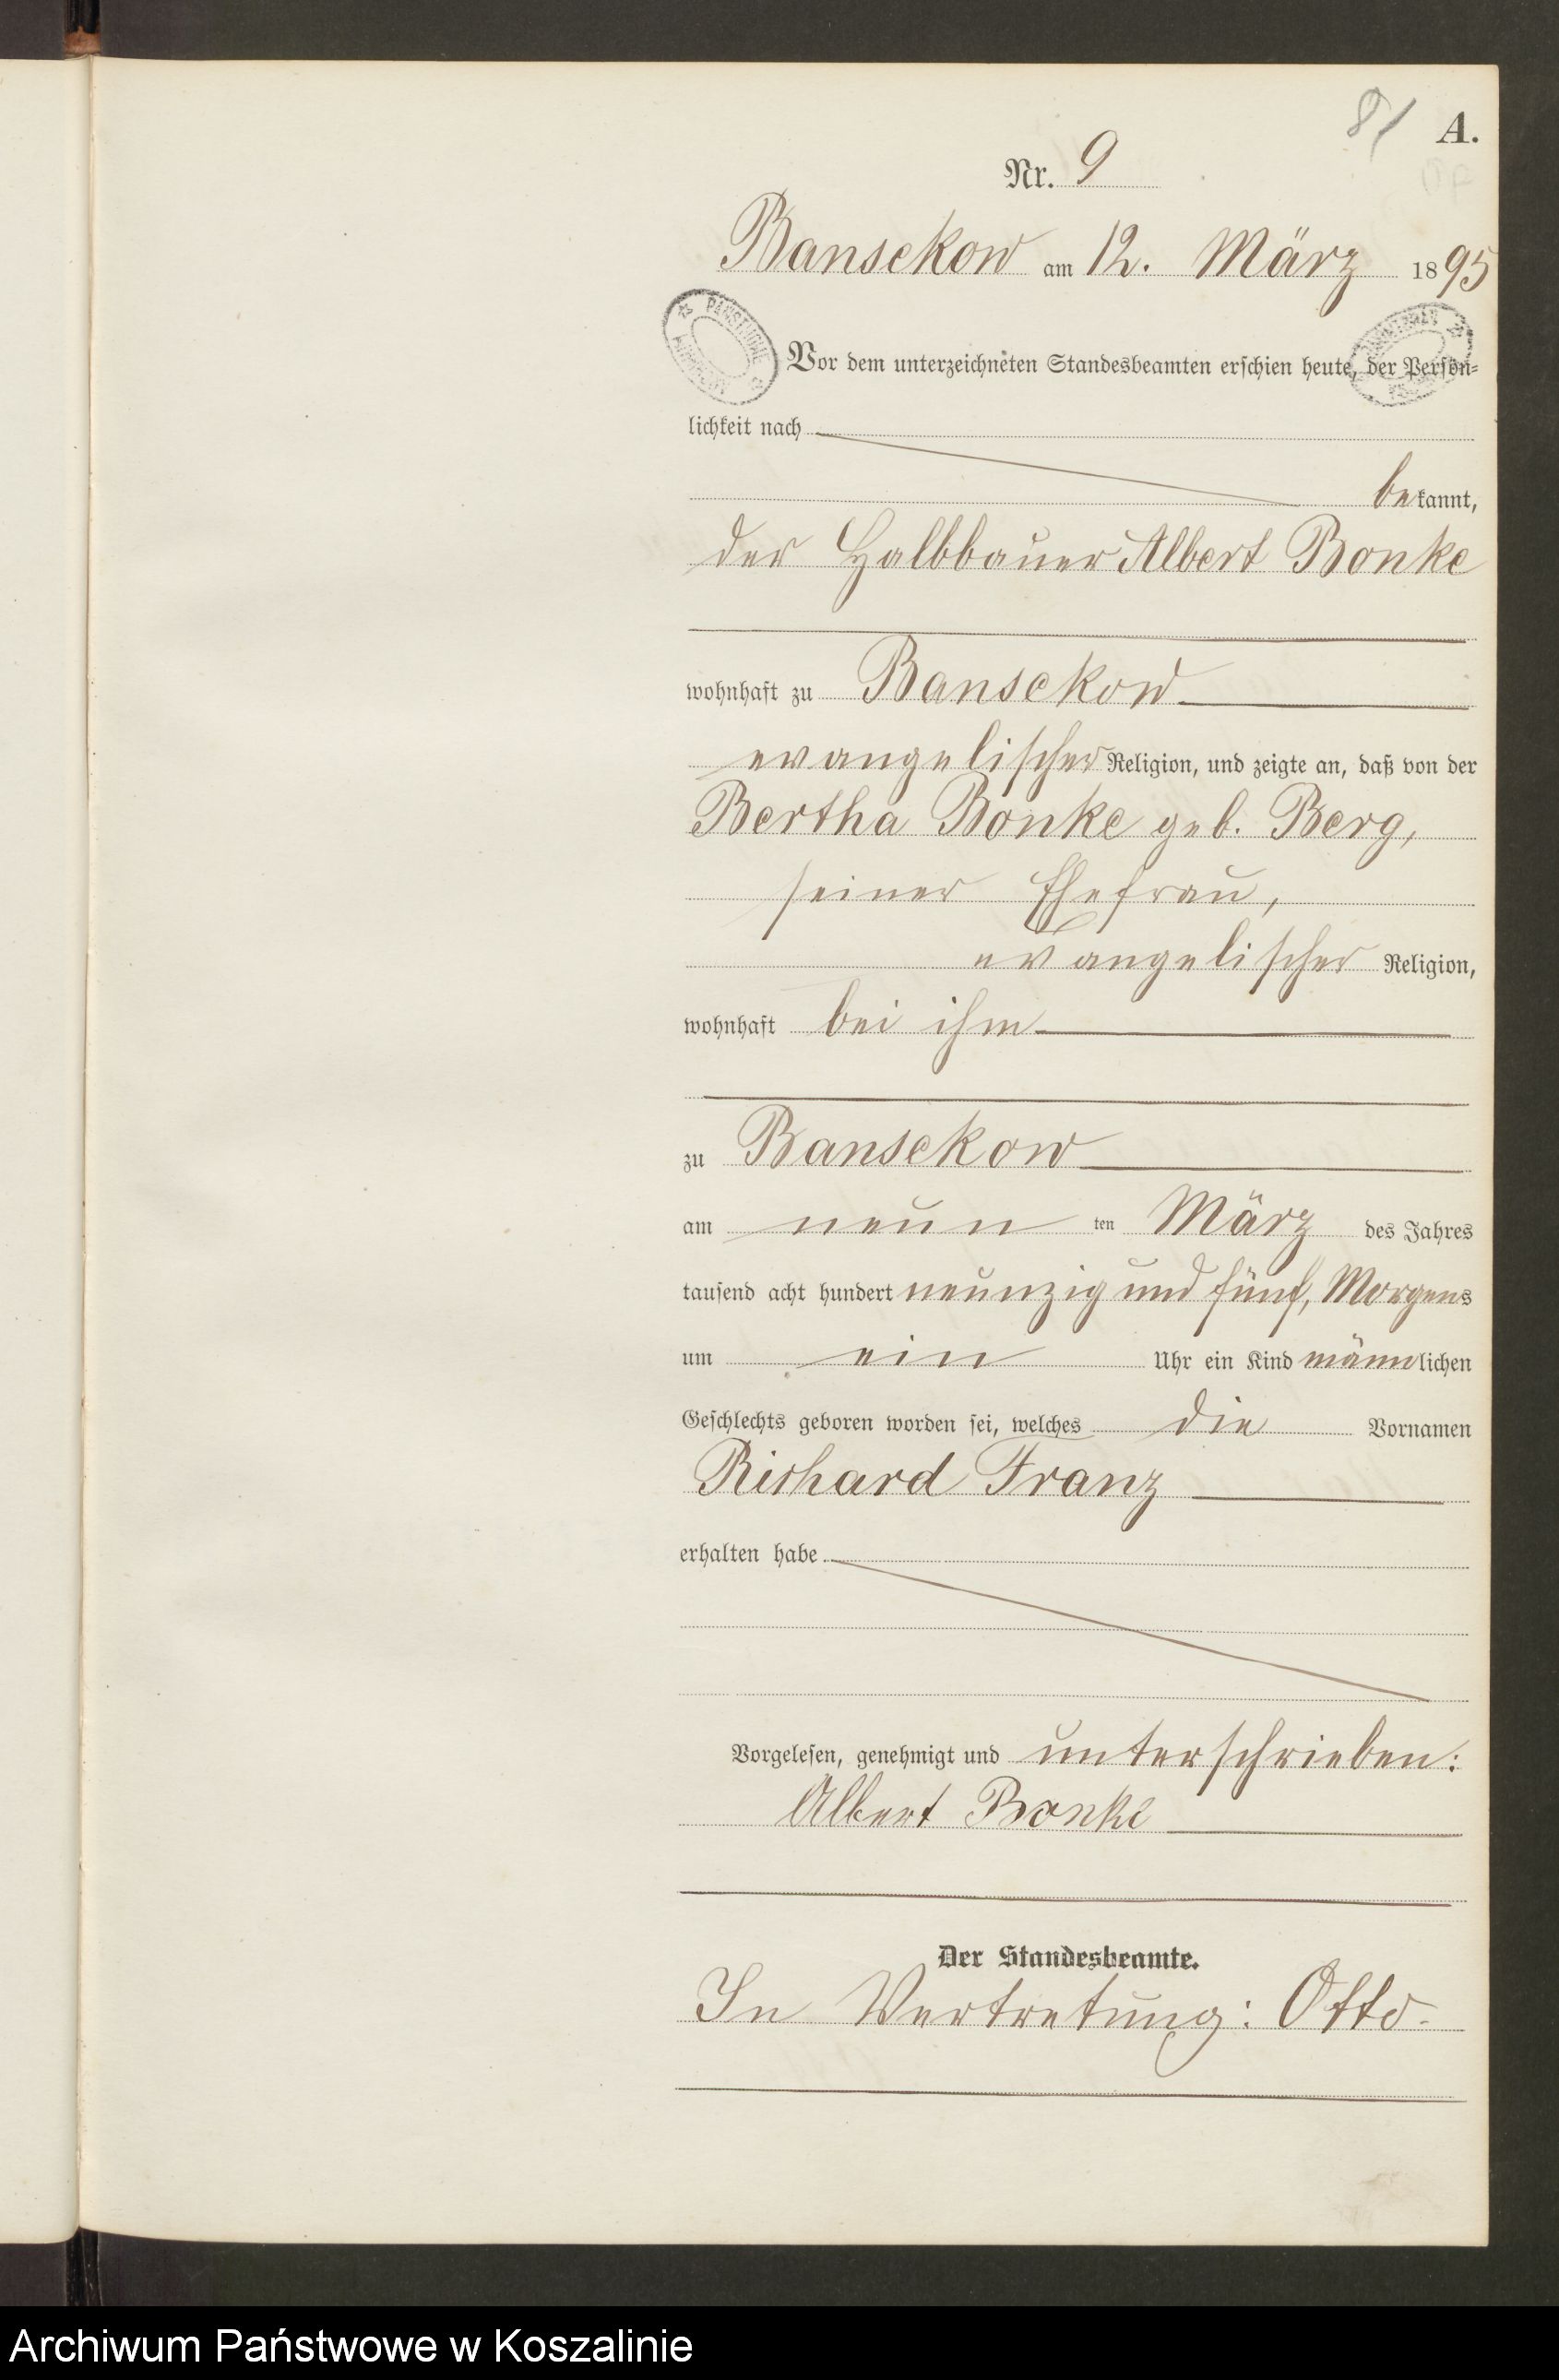 81 A.
Nr. 9
Bansekow am 12. März 1895
Vor dem unterzeichneten Standesbeamten erschien heute, der Persön-
lichkeit nach
bekannt,
der Halbbauer Albert Bonke
wohnhaft zu Bansekow
evangelischer Religion, und zeigte an, daß von der
Bertha Bonke geb. Berg,
seiner Ehefrau,
evangelischer Religion,
wohnhaft bei ihm
zu Bansekow
am neun ten März des Jahres
tausend acht hundert neunzig und fünf, Morgens
um ein Uhr ein Kind männlichen
Geschlechts geboren worden sei, welches die Vornamen
Richard Franz
erhalten habe
Vorgelesen, genehmigt und unterschrieben:
Albert Bonke
Der Standesbeamte.
In Vertretung: Otto.
Archiwum Państwowe w Koszalinie